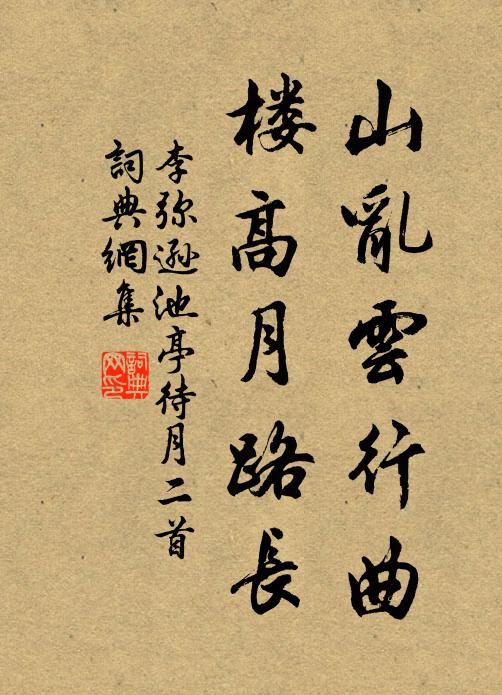 山亂雲行曲
楼高月路長
李弥遜池亭待月二首
詞典網集
詞典网印